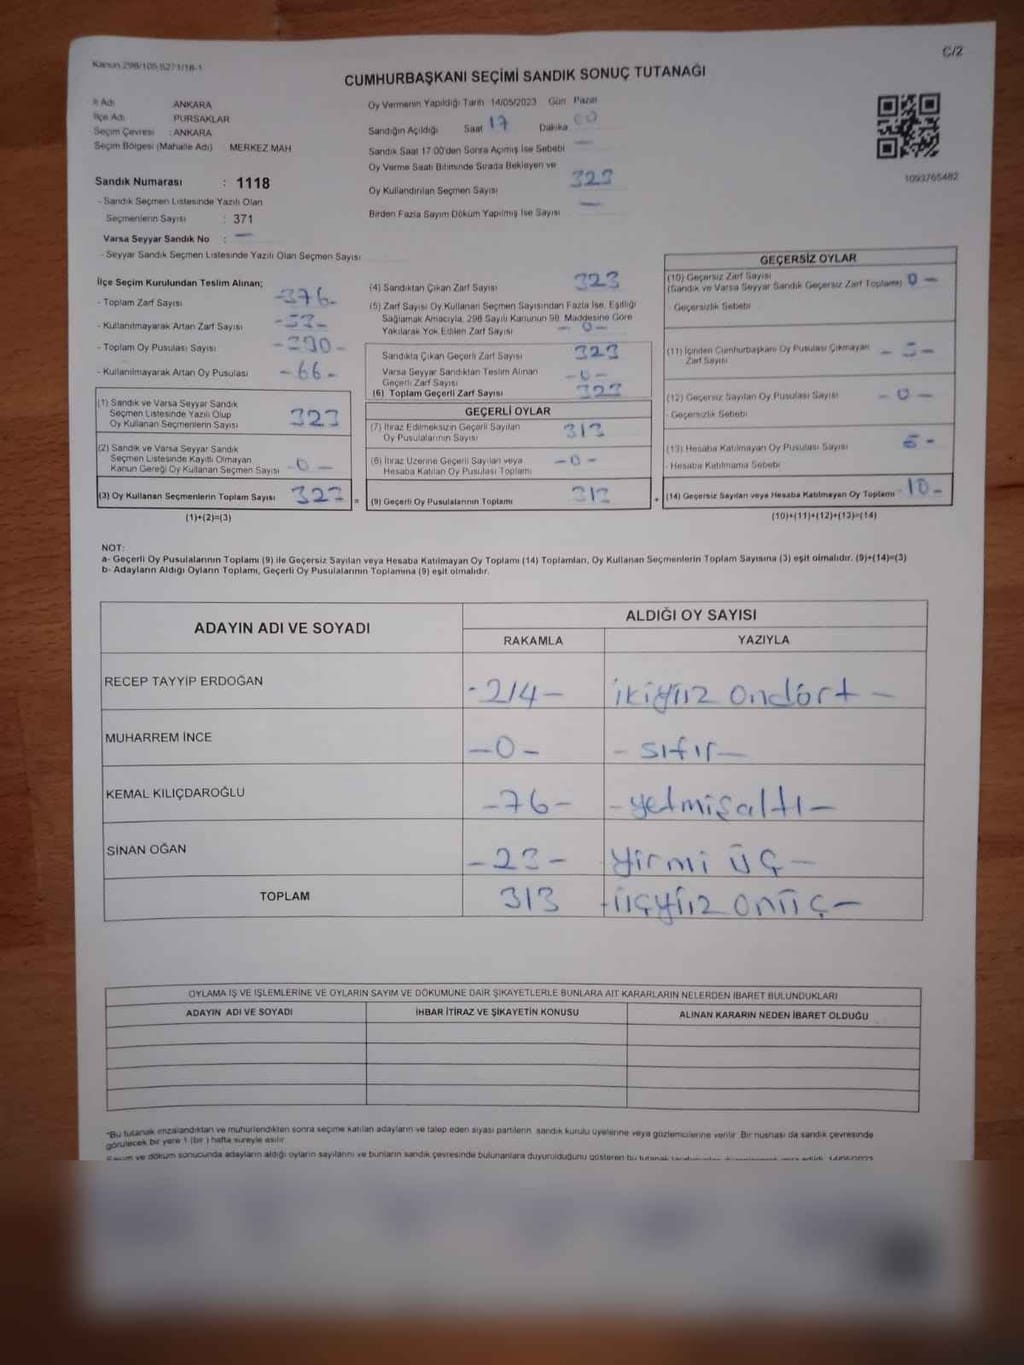 Kanun 298/105,6271/18-1
C/2
CUMHURBAŞKANI SEÇİMİ SANDIK SONUÇ TUTANAĞI
İl Adı ANKARA
İlçe Adı PURSAKLAR
Seçim Çevresi : ANKARA
Seçim Bölgesi (Mahalle Adı) MERKEZ MAH
Oy Vermenin Yapıldığı Tarih 14/05/2023 Gün Pazar
Sandığın Açıldığı Saat 17 Dakika 00
Sandık Saat 17:00'den Sonra Açılmış İse Sebebi —
Oy Verme Saati Bitiminde Sırada Bekleyen ve
Oy Kullandırılan Seçmen Sayısı 323
Birden Fazla Sayım Döküm Yapılmış İse Sayısı —
1093765482
Sandık Numarası : 1118
- Sandık Seçmen Listesinde Yazılı Olan
Seçmenlerin Sayısı : 371
Varsa Seyyar Sandık No : —
- Seyyar Sandık Seçmen Listesinde Yazılı Olan Seçmen Sayısı
İlçe Seçim Kurulundan Teslim Alınan;
- Toplam Zarf Sayısı -376-
- Kullanılmayarak Artan Zarf Sayısı
- Toplam Oy Pusulası Sayısı
- Kullanılmayarak Artan Oy Pusulası -66-
(1) Sandık ve Varsa Seyyar Sandık
Seçmen Listesinde Yazılı Olup
Oy Kullanan Seçmenlerin Sayısı 323
(2) Sandık ve Varsa Seyyar Sandık
Seçmen Listesinde Kayıtlı Olmayan
Kanun Gereği Oy Kullanan Seçmen Sayısı -0-
(3) Oy Kullanan Seçmenlerin Toplam Sayısı 323 =
(1)+(2)=(3)
(4) Sandıktan Çıkan Zarf Sayısı 323
(5) Zarf Sayısı Oy Kullanan Seçmen Sayısından Fazla İse, Eşitliği
Sağlamak Amacıyla, 298 Sayılı Kanunun 98. Maddesine Göre
Yakılarak Yok Edilen Zarf Sayısı -0-
Sandıkta Çıkan Geçerli Zarf Sayısı 323
Varsa Seyyar Sandıktan Teslim Alınan
Geçerli Zarf Sayısı -0-
(6) Toplam Geçerli Zarf Sayısı 323
GEÇERLİ OYLAR
(7) İtiraz Edilmeksizin Geçerli Sayılan
Oy Pusulalarının Sayısı 313
(8) İtiraz Üzerine Geçerli Sayılan veya
Hesaba Katılan Oy Pusulası Toplamı -0-
(9) Geçerli Oy Pusulalarının Toplamı 313 +
GEÇERSİZ OYLAR
(10) Geçersiz Zarf Sayısı
(Sandık ve Varsa Seyyar Sandık Geçersiz Zarf Toplamı) 0 -
- Geçersizlik Sebebi
(11) İçinden Cumhurbaşkanı Oy Pusulası Çıkmayan
Zarf Sayısı
(12) Geçersiz Sayılan Oy Pusulası Sayısı - 0 -
- Geçersizlik Sebebi
(13) Hesaba Katılmayan Oy Pusulası Sayısı
- Hesaba Katılmama Sebebi
(14) Geçersiz Sayılan veya Hesaba Katılmayan Oy Toplamı -10-
(10)+(11)+(12)+(13)=(14)
NOT:
a- Geçerli Oy Pusulalarının Toplamı (9) ile Geçersiz Sayılan veya Hesaba Katılmayan Oy Toplamı (14) Toplamları, Oy Kullanan Seçmenlerin Toplam Sayısına (3) eşit olmalıdır. (9)+(14)=(3)
b- Adayların Aldığı Oyların Toplamı, Geçerli Oy Pusulalarının Toplamına (9) eşit olmalıdır.
ADAYIN ADI VE SOYADI
ALDIĞI OY SAYISI
RAKAMLA YAZIYLA
RECEP TAYYİP ERDOĞAN -214- ikiyüz ondört -
MUHARREM İNCE -0- - sıfır -
KEMAL KILIÇDAROĞLU -76- -yetmişaltı-
SİNAN OĞAN -23- yirmi üç -
TOPLAM 313 -üçyüz onüç-
OYLAMA İŞ VE İŞLEMLERİNE VE OYLARIN SAYIM VE DÖKÜMÜNE DAİR ŞİKAYETLERLE BUNLARA AİT KARARLARIN NELERDEN İBARET BULUNDUKLARI
ADAYIN ADI VE SOYADI
İHBAR İTİRAZ VE ŞİKAYETİN KONUSU
ALINAN KARARIN NEDEN İBARET OLDUĞU
*Bu tutanak imzalandıktan ve mühürlendikten sonra seçime katılan adayların ve talep eden siyasi partilerin sandık kurulu üyelerine veya gözlemcilerine verilir. Bir nüshası da sandık çevresinde
görülecek bir yere 1 (bir ) hafta süreyle asılır.
Sayım ve döküm sonucunda adayların aldığı oyların sayılarını ve bunların sandık çevresinde bulunanlara duyurulduğunu gösteren bu tutanak